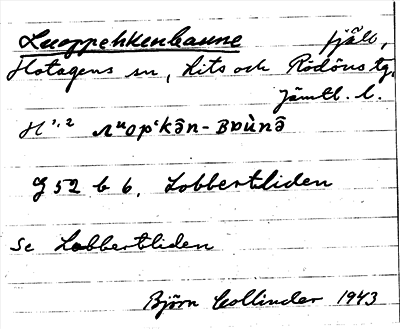 Luoppehkenbaune fjäll,
Hotagens sn, Lits och Rödöns tg,
Jämtl. l.
H¹·² ʌᵘopʻkən-Bɒùnə
G 52 b 6. Lobbertliden
Se Lobbertliden
Björn Collinder 1943